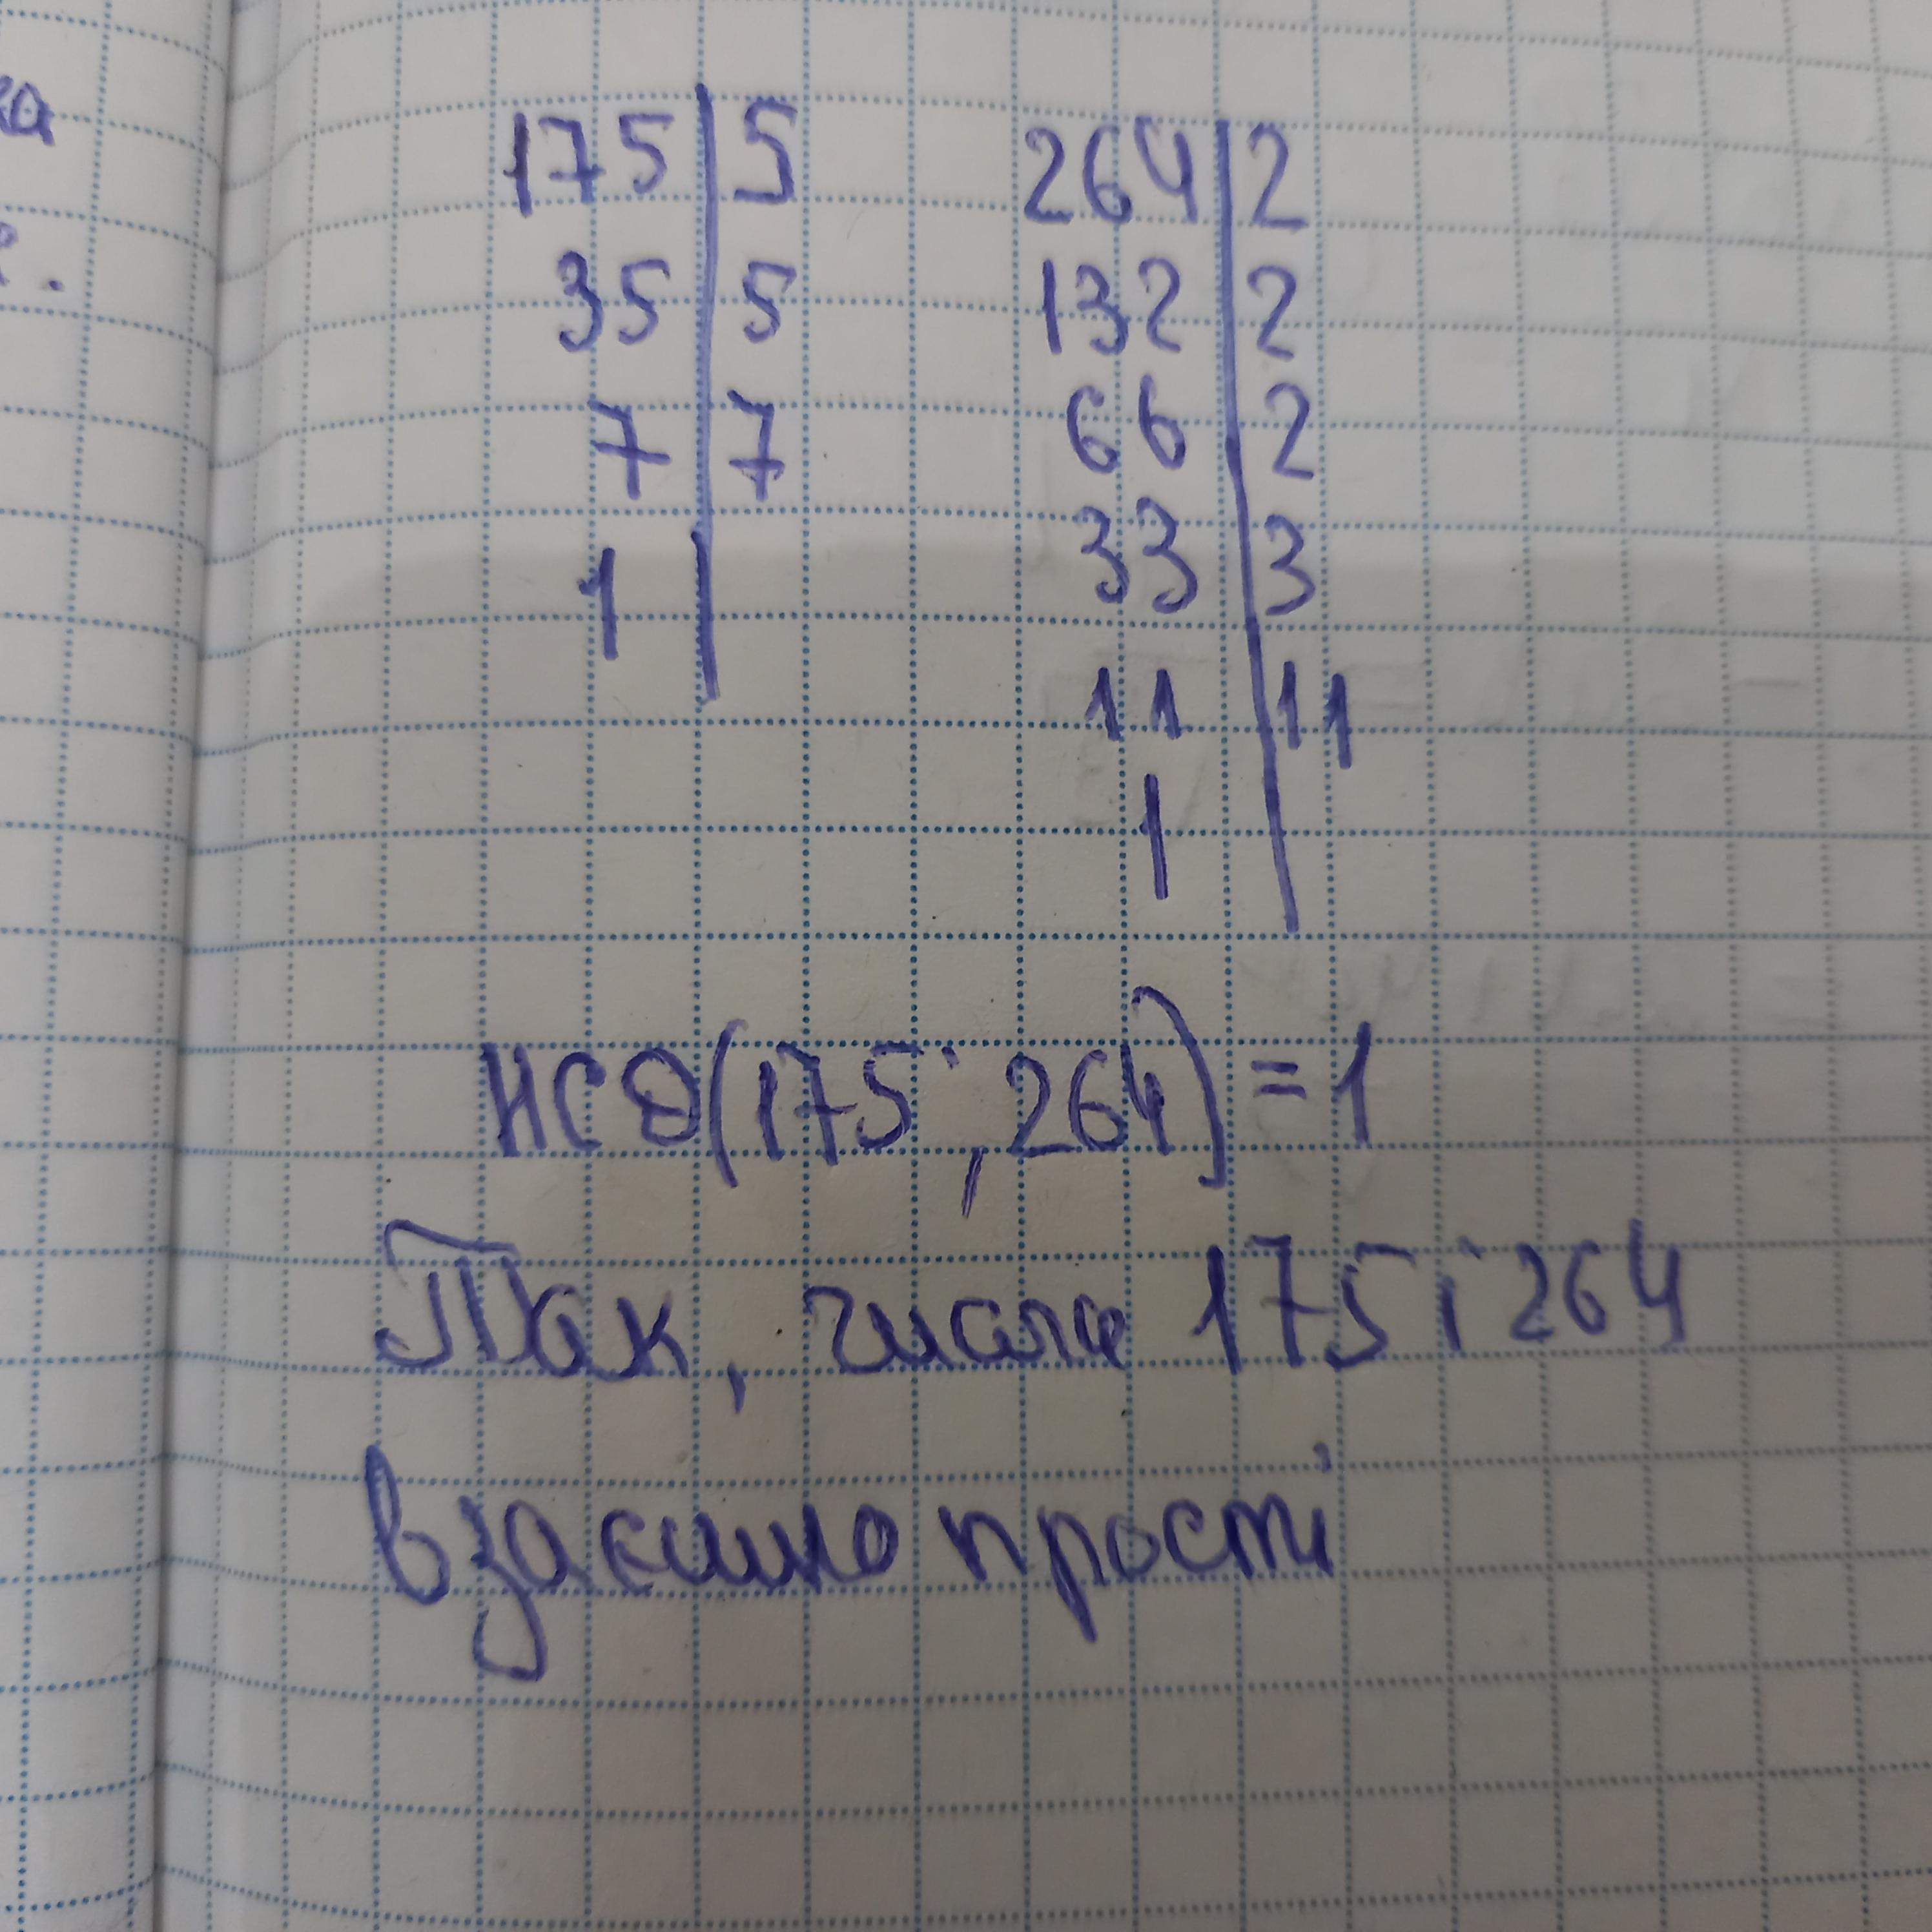 175 | 5
35 | 5
7 | 7
1 |
264 | 2
132 | 2
66 | 2
33 | 3
11 | 11
1 |
НСД(175; 264) = 1
Так, числа 175 і 264
взаємно прості